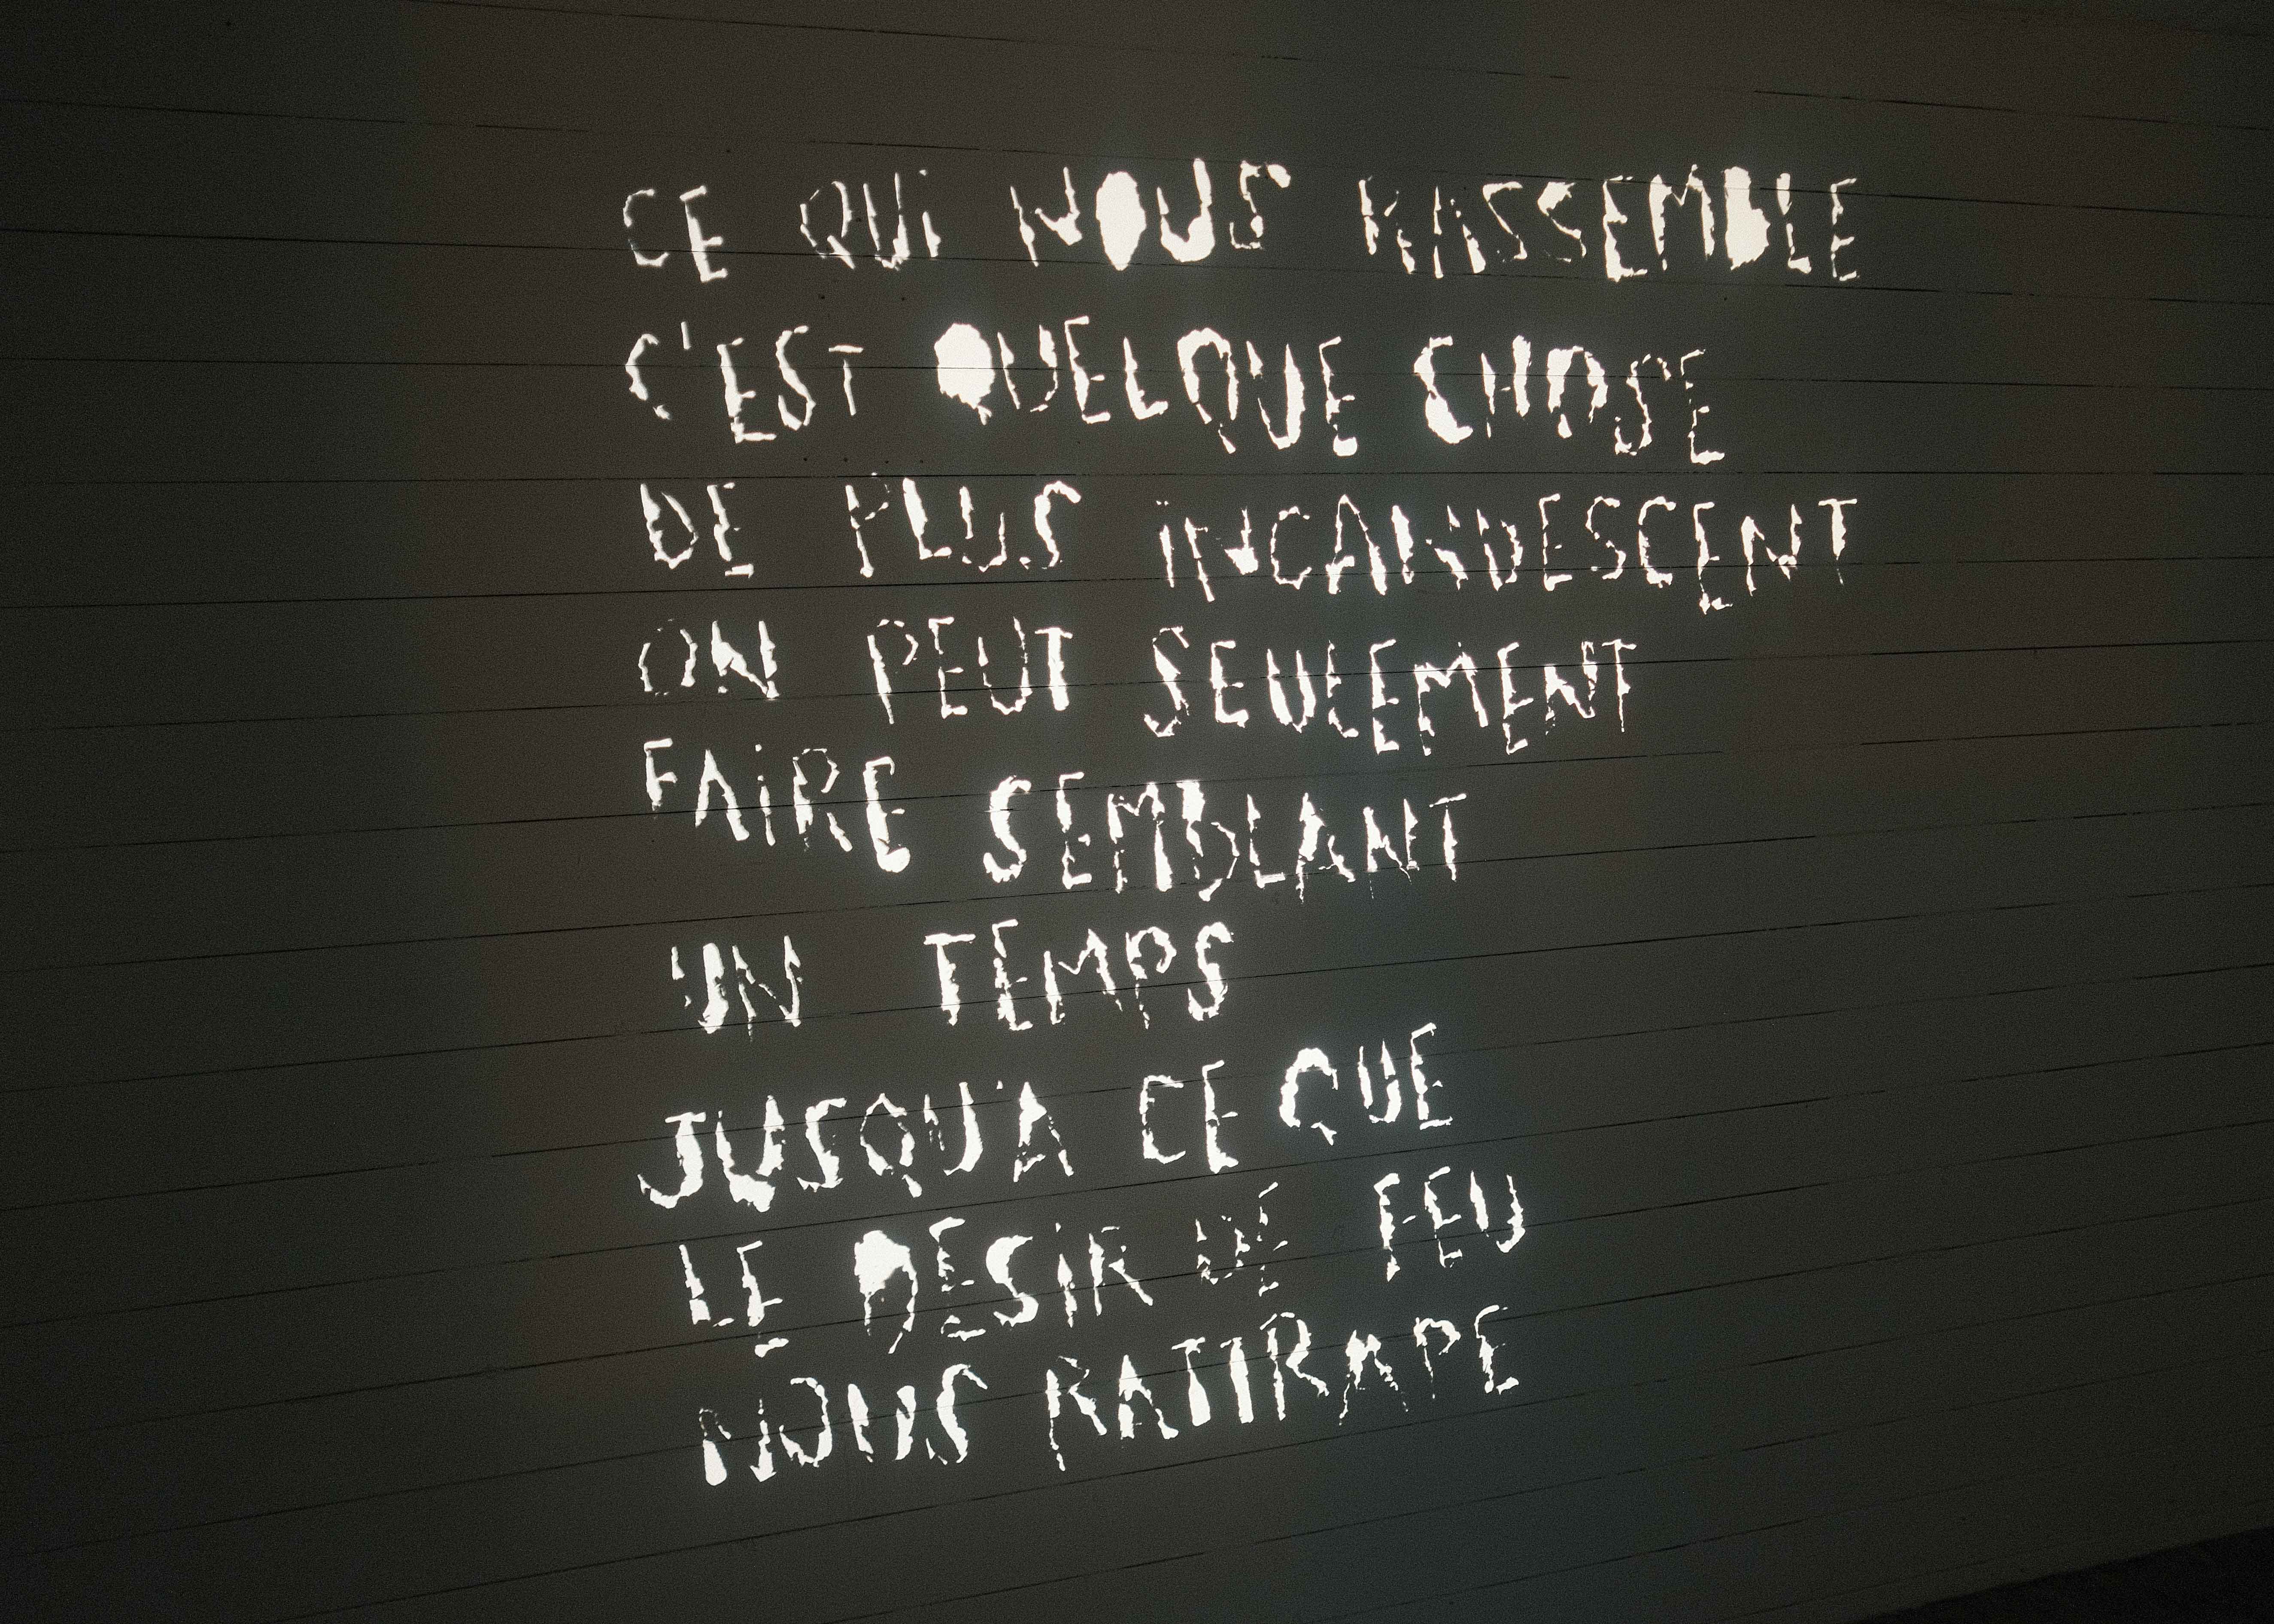 CE QUi NOUS RASSEMBLE
C'EST QUELQUE CHOSE
DE PLUS iNCANDESCENT
ON PEUT SEULEMENT
FAiRE SEMBLANT
UN TEMPS
JUSQU'À CE QUE
LE DESiR DE FEU
NOUS RATTRAPE